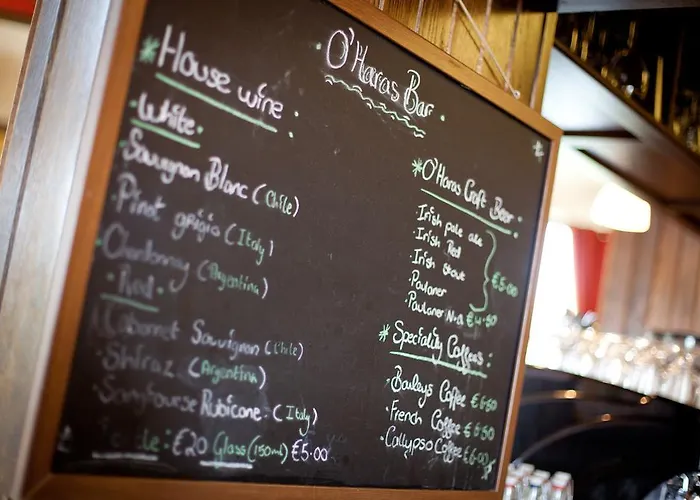 O'Haras Bar.
* House wine :
·White·
·Sauvignon Blanc (Chile)
·Pinot grigio (Italy)
·Chardonnay (Argentina)
·Red·
·Cabernet Sauvignon (Chile)
·Shiraz (Argentina)
Rubicone. (Italy)
: €20 Glass (150ml) €5.00
* O'Haras Craft Beer :
·Irish pale ale
·Irish Red
·Irish Stout
·Paulaner
€5.00
·Paulaner N.A €4.50
* Speciality Coffees :
·Baileys Coffee €6.50
·French Coffee €6.50
·Callypso Coffee €6.00